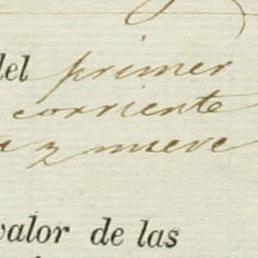 del primer
corriente
z nueve
valor de las